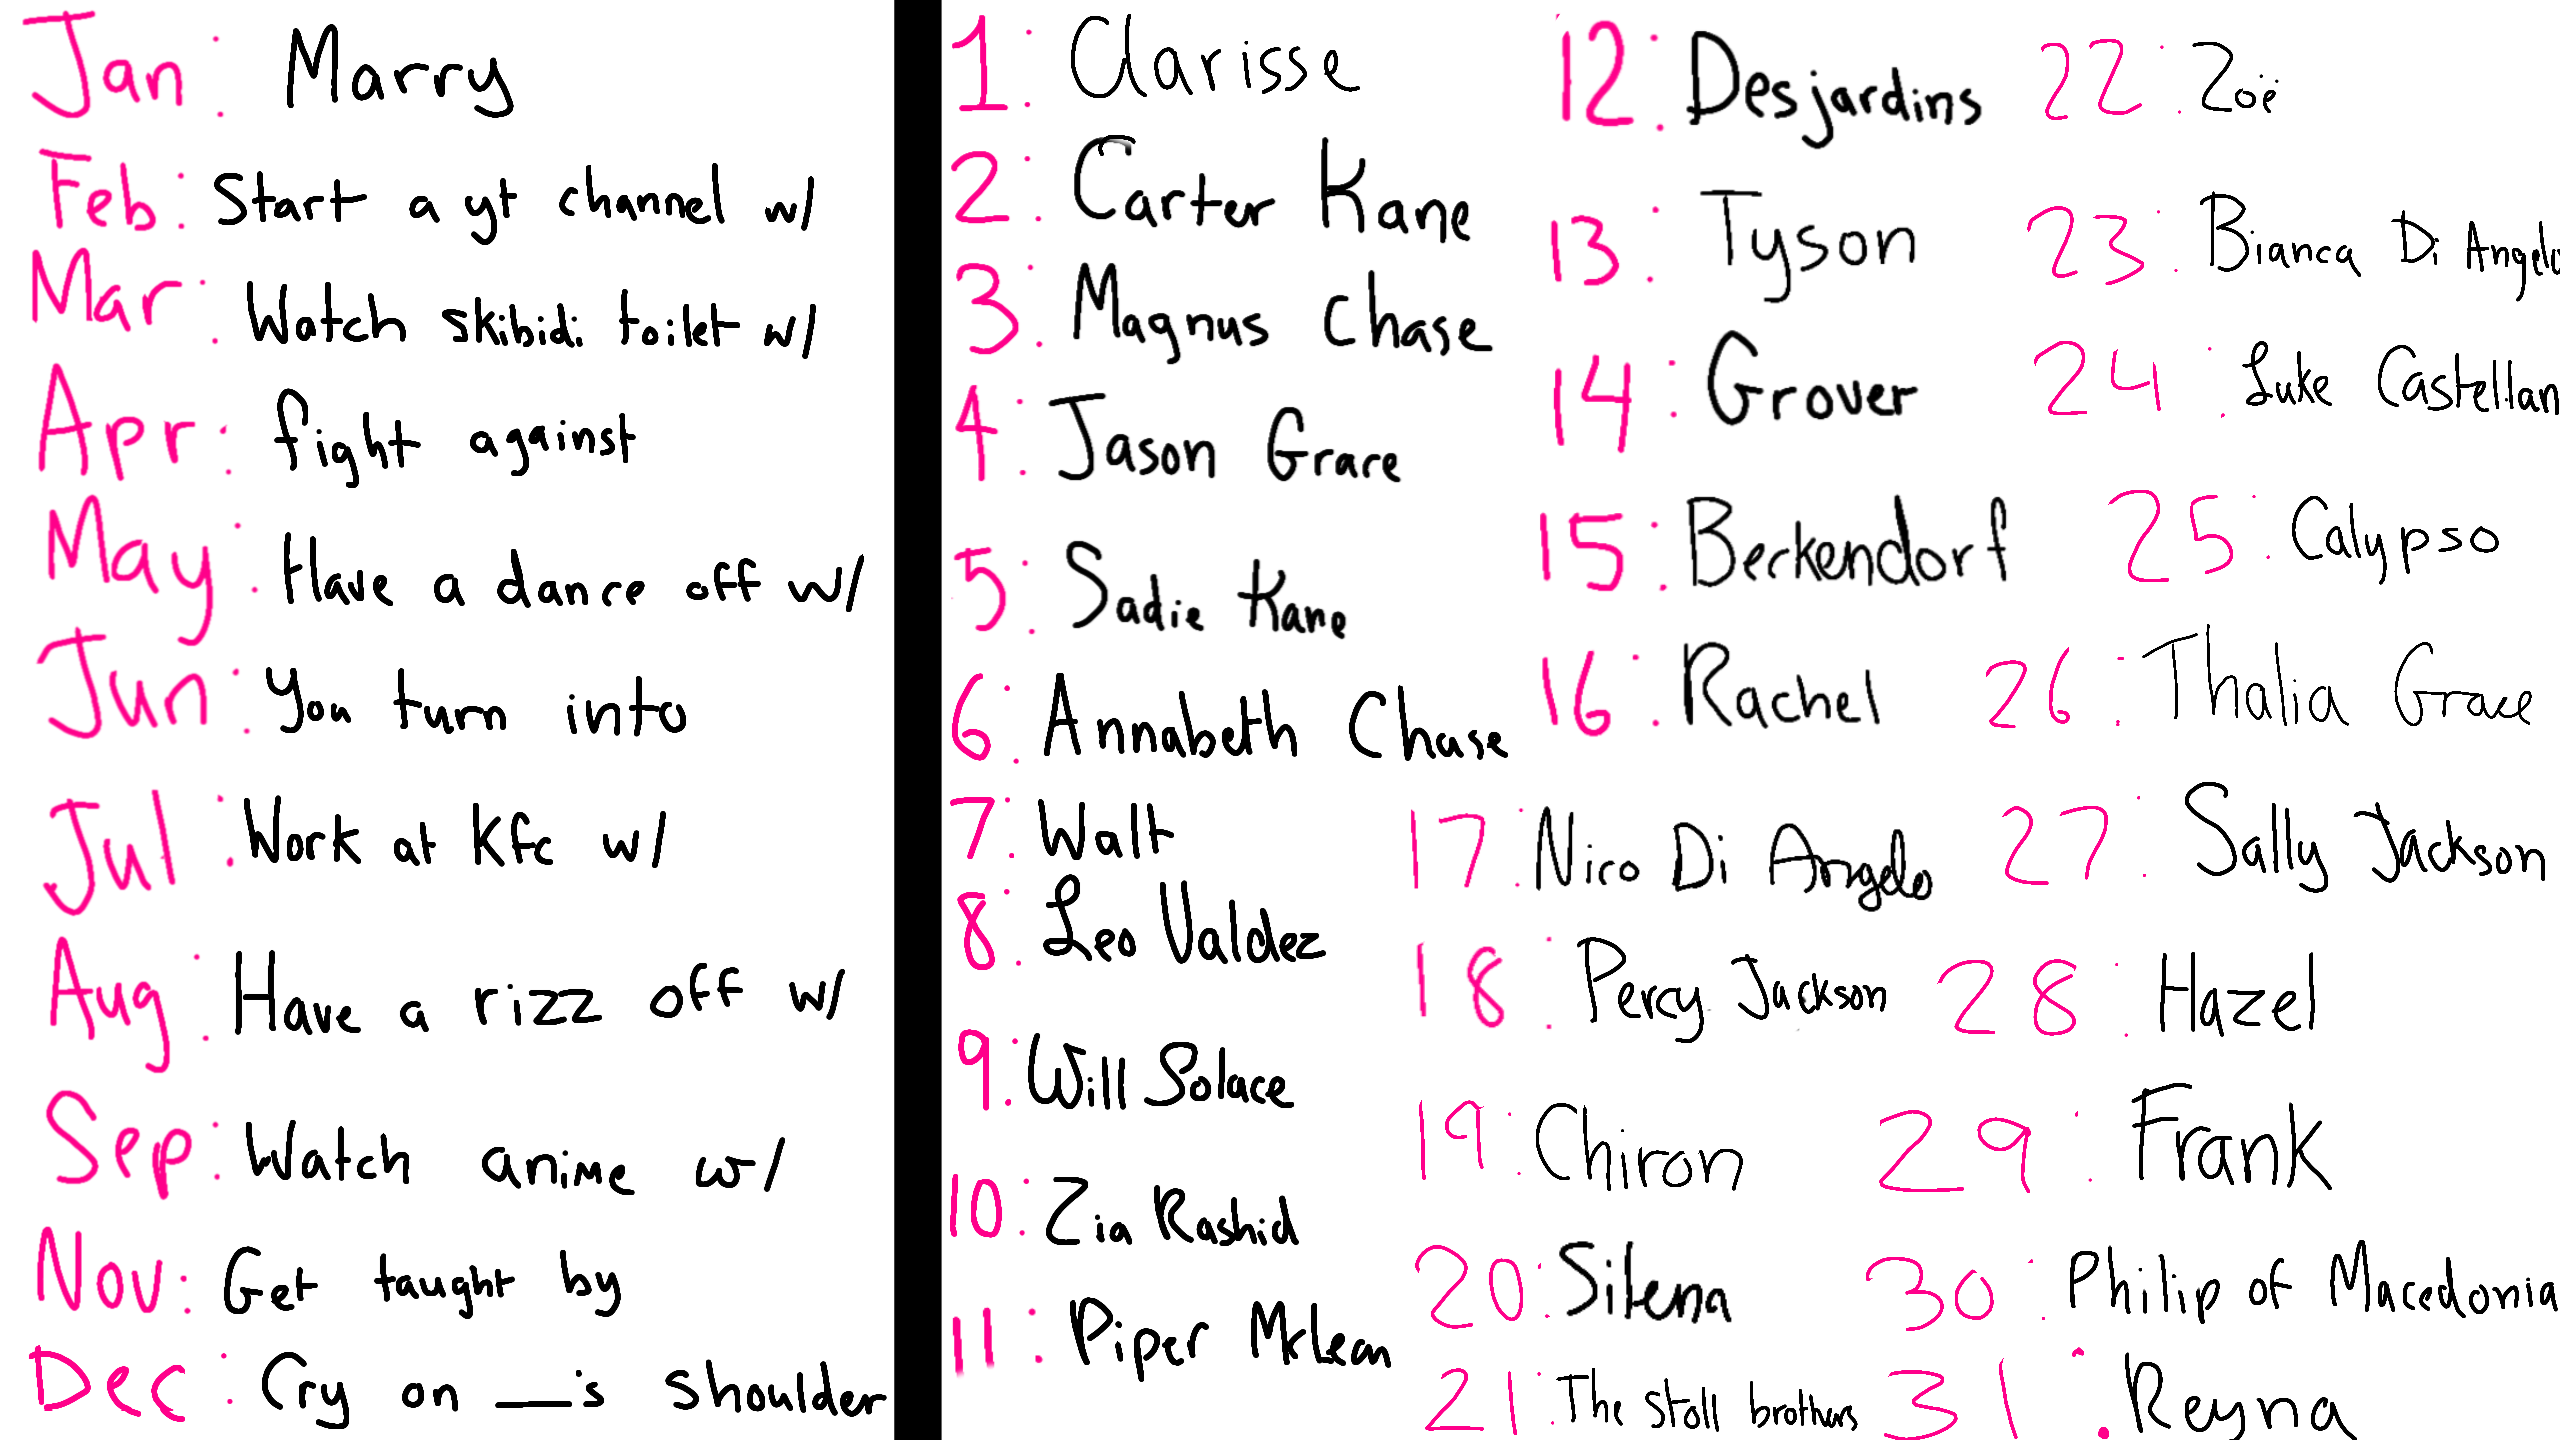 Jan: Marry
Feb: Start a yt channel w/
Mar: Watch skibidi toilet w/
Apr: fight against
May: Have a dance off w/
Jun: You turn into
Jul: Work at Kfc w/
Aug: Have a rizz off w/
Sep: Watch anime w/
Nov: Get taught by
Dec: Cry on __'s shoulder
1: Clarisse
2: Carter Kane
3: Magnus Chase
4: Jason Grace
5: Sadie Kane
6: Annabeth Chase
7: Walt
8: Leo Valdez
9: Will Solace
10: Zia Rashid
11: Piper McLean
12: Desjardins
13: Tyson
14: Grover
15: Beckendorf
16: Rachel
17: Nico Di Angelo
18: Percy Jackson
19: Chiron
20: Silena
21: The Stoll brothers
22: Zoë
23: Bianca Di Angelo
24: Luke Castellan
25: Calypso
26: Thalia Grace
27: Sally Jackson
28: Hazel
29: Frank
30: Philip of Macedonia
31: Reyna